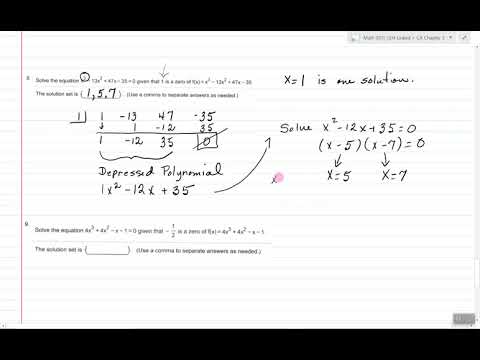 CA Chapter 3
8.
Solve the equation x³ − 13x² + 47x − 35 = 0 given that 1 is a zero of f(x) = x³ − 13x² + 47x − 35
The solution set is { 1, 5, 7 }. (Use a comma to separate answers as needed.)
x = 1 is one solution.
1| 1 -13 47 -35
↓ 1 -12 35
1 -12 35 0
Depressed Polynomial
1x² - 12x + 35
Solve x² - 12x + 35 = 0
(x - 5)(x - 7) = 0
x = 5 x = 7
x
9.
Solve the equation 4x³ + 4x² − x − 1 = 0 given that − 1/2 is a zero of f(x) = 4x³ + 4x² − x − 1
The solution set is { }. (Use a comma to separate answers as needed.)